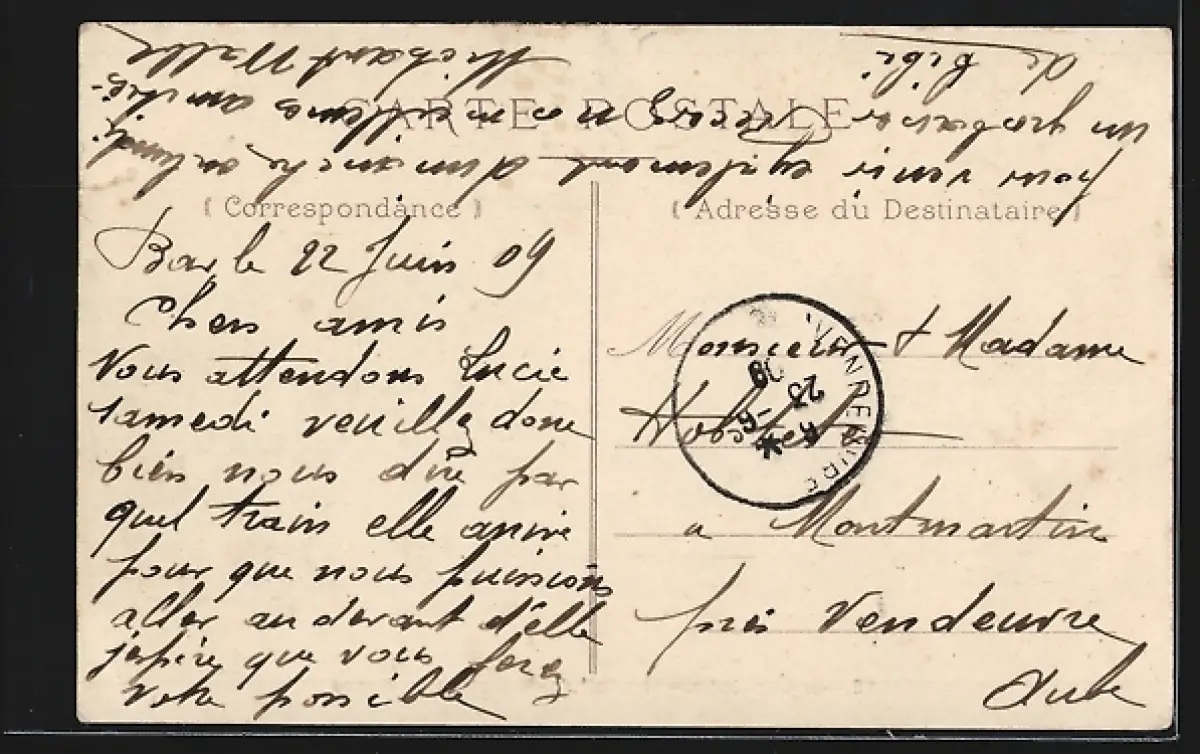 CARTE POSTALE
(Correspondance)
Bar le 22 Juin 09
Chers amis
Vous attendons Lucie
samedi veuillez donc
bien nous dire par
quel train elle arrive
pour que nous puissions
aller au devant d'elle
j'espère que vous ferez
votre possible
pour venir également dimanche ou lundi
un gros baiser nos meilleures amitiés
de Bibi
(Adresse du Destinataire)
Monsieur & Madame
a Montmartin
près Vendeuvre
Aube
23 -6
09